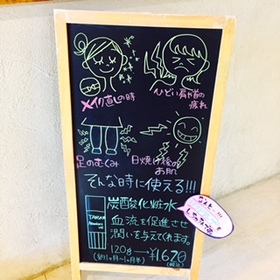 メイク直しの時
ひどい肩や首の
疲れ
足のむくみ
日焼け後の
お肌
そんな時に使える!!!
炭酸化粧水
TANSAN
血流を促進させ
潤いを与えてくれます。
120g→¥1620
(約1ヶ月〜1ヶ月半)
(税込)